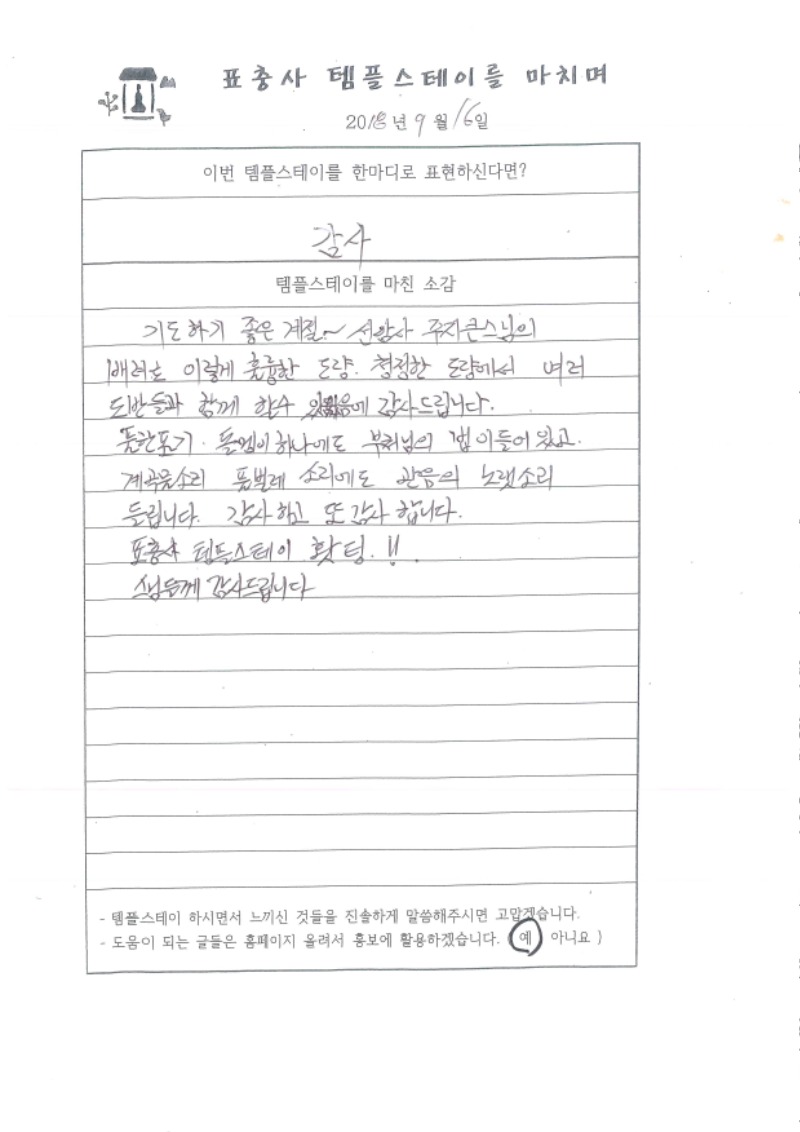 표충사 템플스테이를 마치며
2018년 9월 16일
이번 템플스테이를 한마디로 표현하신다면?
감사
템플스테이를 마친 소감
기도하기 좋은 계절~ 선암사 주지큰스님의
배려로 이렇게 훌륭한 도량. 청정한 도량에서 여러
도반들과 함께 할수 있음에 감사드립니다.
풀한포기. 돌멩이하나에도 부처님의 법이들어있고.
계곡물소리 풀벌레 소리에도 관음의 노랫소리
들립니다. 감사하고 또 감사합니다.
표충사 템플스테이 홧팅.!!.
스님들께 감사드립니다
- 템플스테이 하시면서 느끼신 것들을 진솔하게 말씀해주시면 고맙겠습니다.
- 도움이 되는 글들은 홈페이지 올려서 홍보에 활용하겠습니다. (예 아니요 )